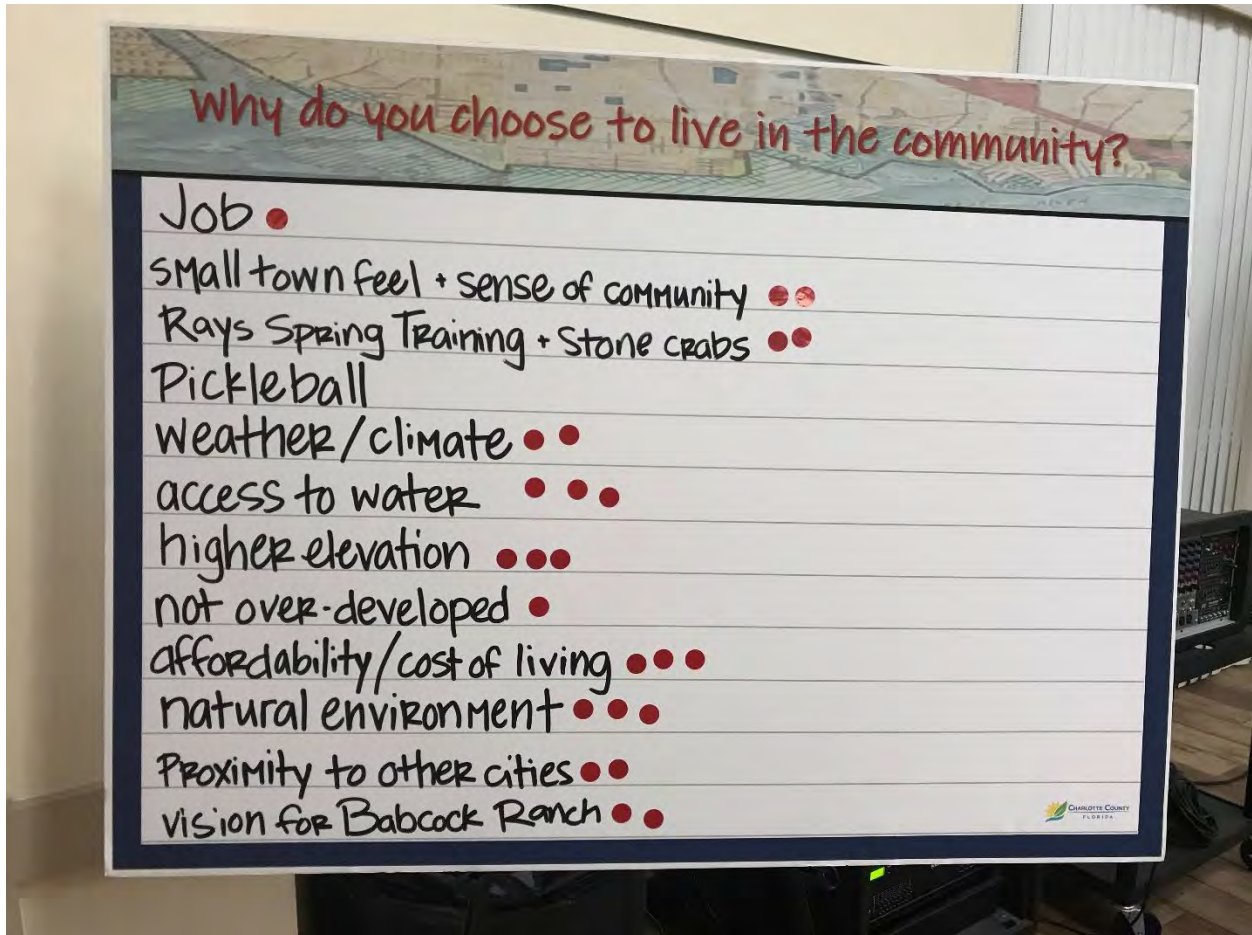 Why do you choose to live in the community?
Job
small town feel + sense of community
Rays Spring Training + Stone crabs
Pickleball
weather/climate
access to water
higher elevation
not over-developed
affordability/cost of living
natural environment
Proximity to other cities
vision for Babcock Ranch
CHARLOTTE COUNTY
FLORIDA